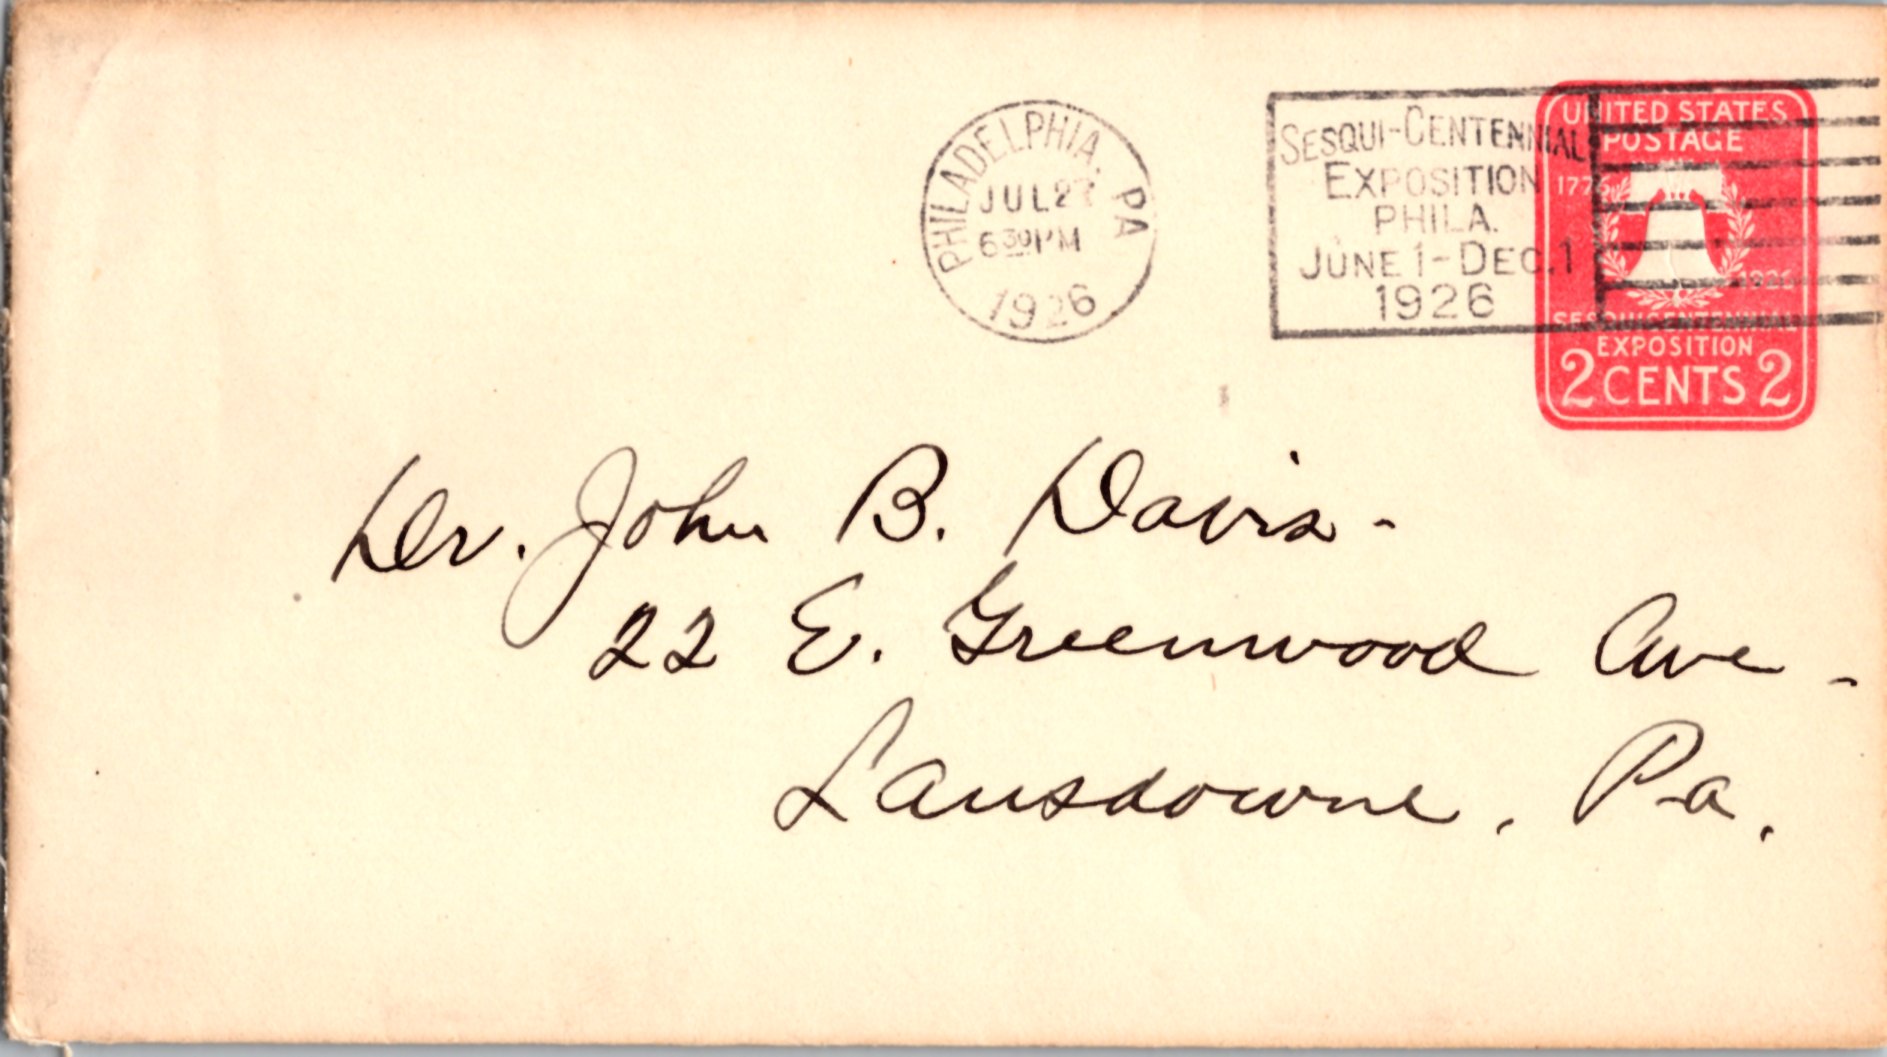 PHILADELPHIA, PA
JUL 27
6 30 PM
1926
SESQUI-CENTENNIAL
EXPOSITION
PHILA.
JUNE 1 - DEC. 1
1926
UNITED STATES
POSTAGE
1776
1926
SESQUICENTENNIAL
EXPOSITION
2 CENTS 2
Dr. John B. Davis -
22 E. Greenwood Ave -
Lansdowne, Pa.